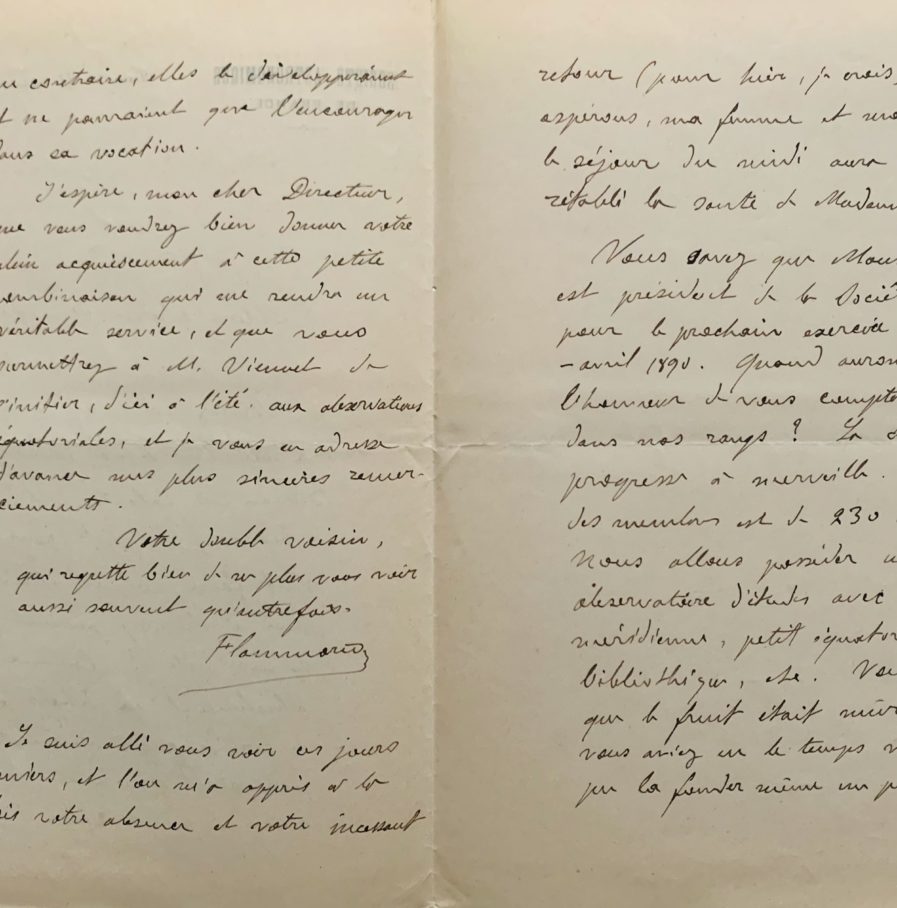 au contraire, elles le développeraient
et ne pourraient que l'encourager
dans sa vocation.
J'espère, mon cher Directeur,
que vous voudrez bien donner votre
plein acquiescement à cette petite
combinaison qui me rendra un
véritable service, et que vous
permettrez à M. Viennet de
s'initier, d'ici à l'été, aux observations
équatoriales, et je vous en adresse
d'avance mes plus sincères remer-
ciements.
Votre double voisin,
qui regrette bien de ne plus vous voir
aussi souvent qu'autrefois.
Flammarion
Je suis allé vous voir ces jours
derniers, et l'on m'a appris à la
fois votre absence et votre incessant
retour (pour hier, je crois,
espérons, ma femme et moi
le séjour du midi aura
rétabli la santé de Madame
Vous savez que Mou
est président de la Socié
pour le prochain exercice
- avril 1890. Quand auron
l'honneur de vous compte
dans nos rangs ? La S
progresse à merveille.
des membres est de 230
Nous allons posséder u
observatoire d'études avec
méridienne, petit équator
bibliothèque, etc. Vou
que le fruit était mûr
vous aviez eu le temps
pu la fonder même un p